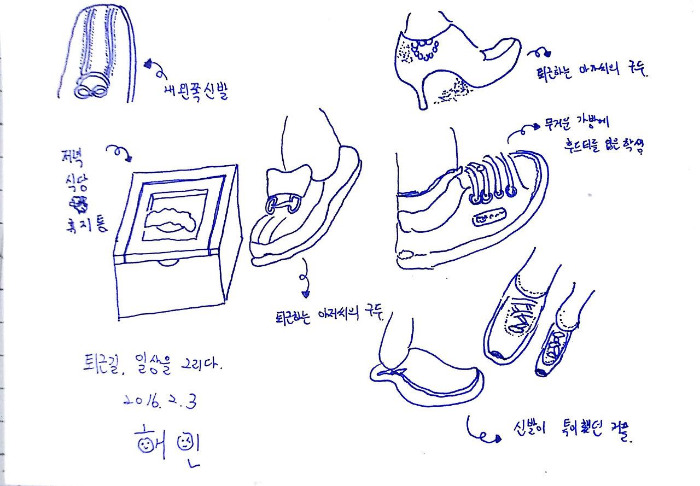 내 왼쪽 신발
퇴근하는 아저씨의 구두.
무거운 가방에
후드티를 입은 학생
저녁
식당
휴지통
퇴근하는 아저씨의 구두.
신발이 특이했던 커플.
퇴근길, 일상을 그리다.
2016. 2. 3
해인